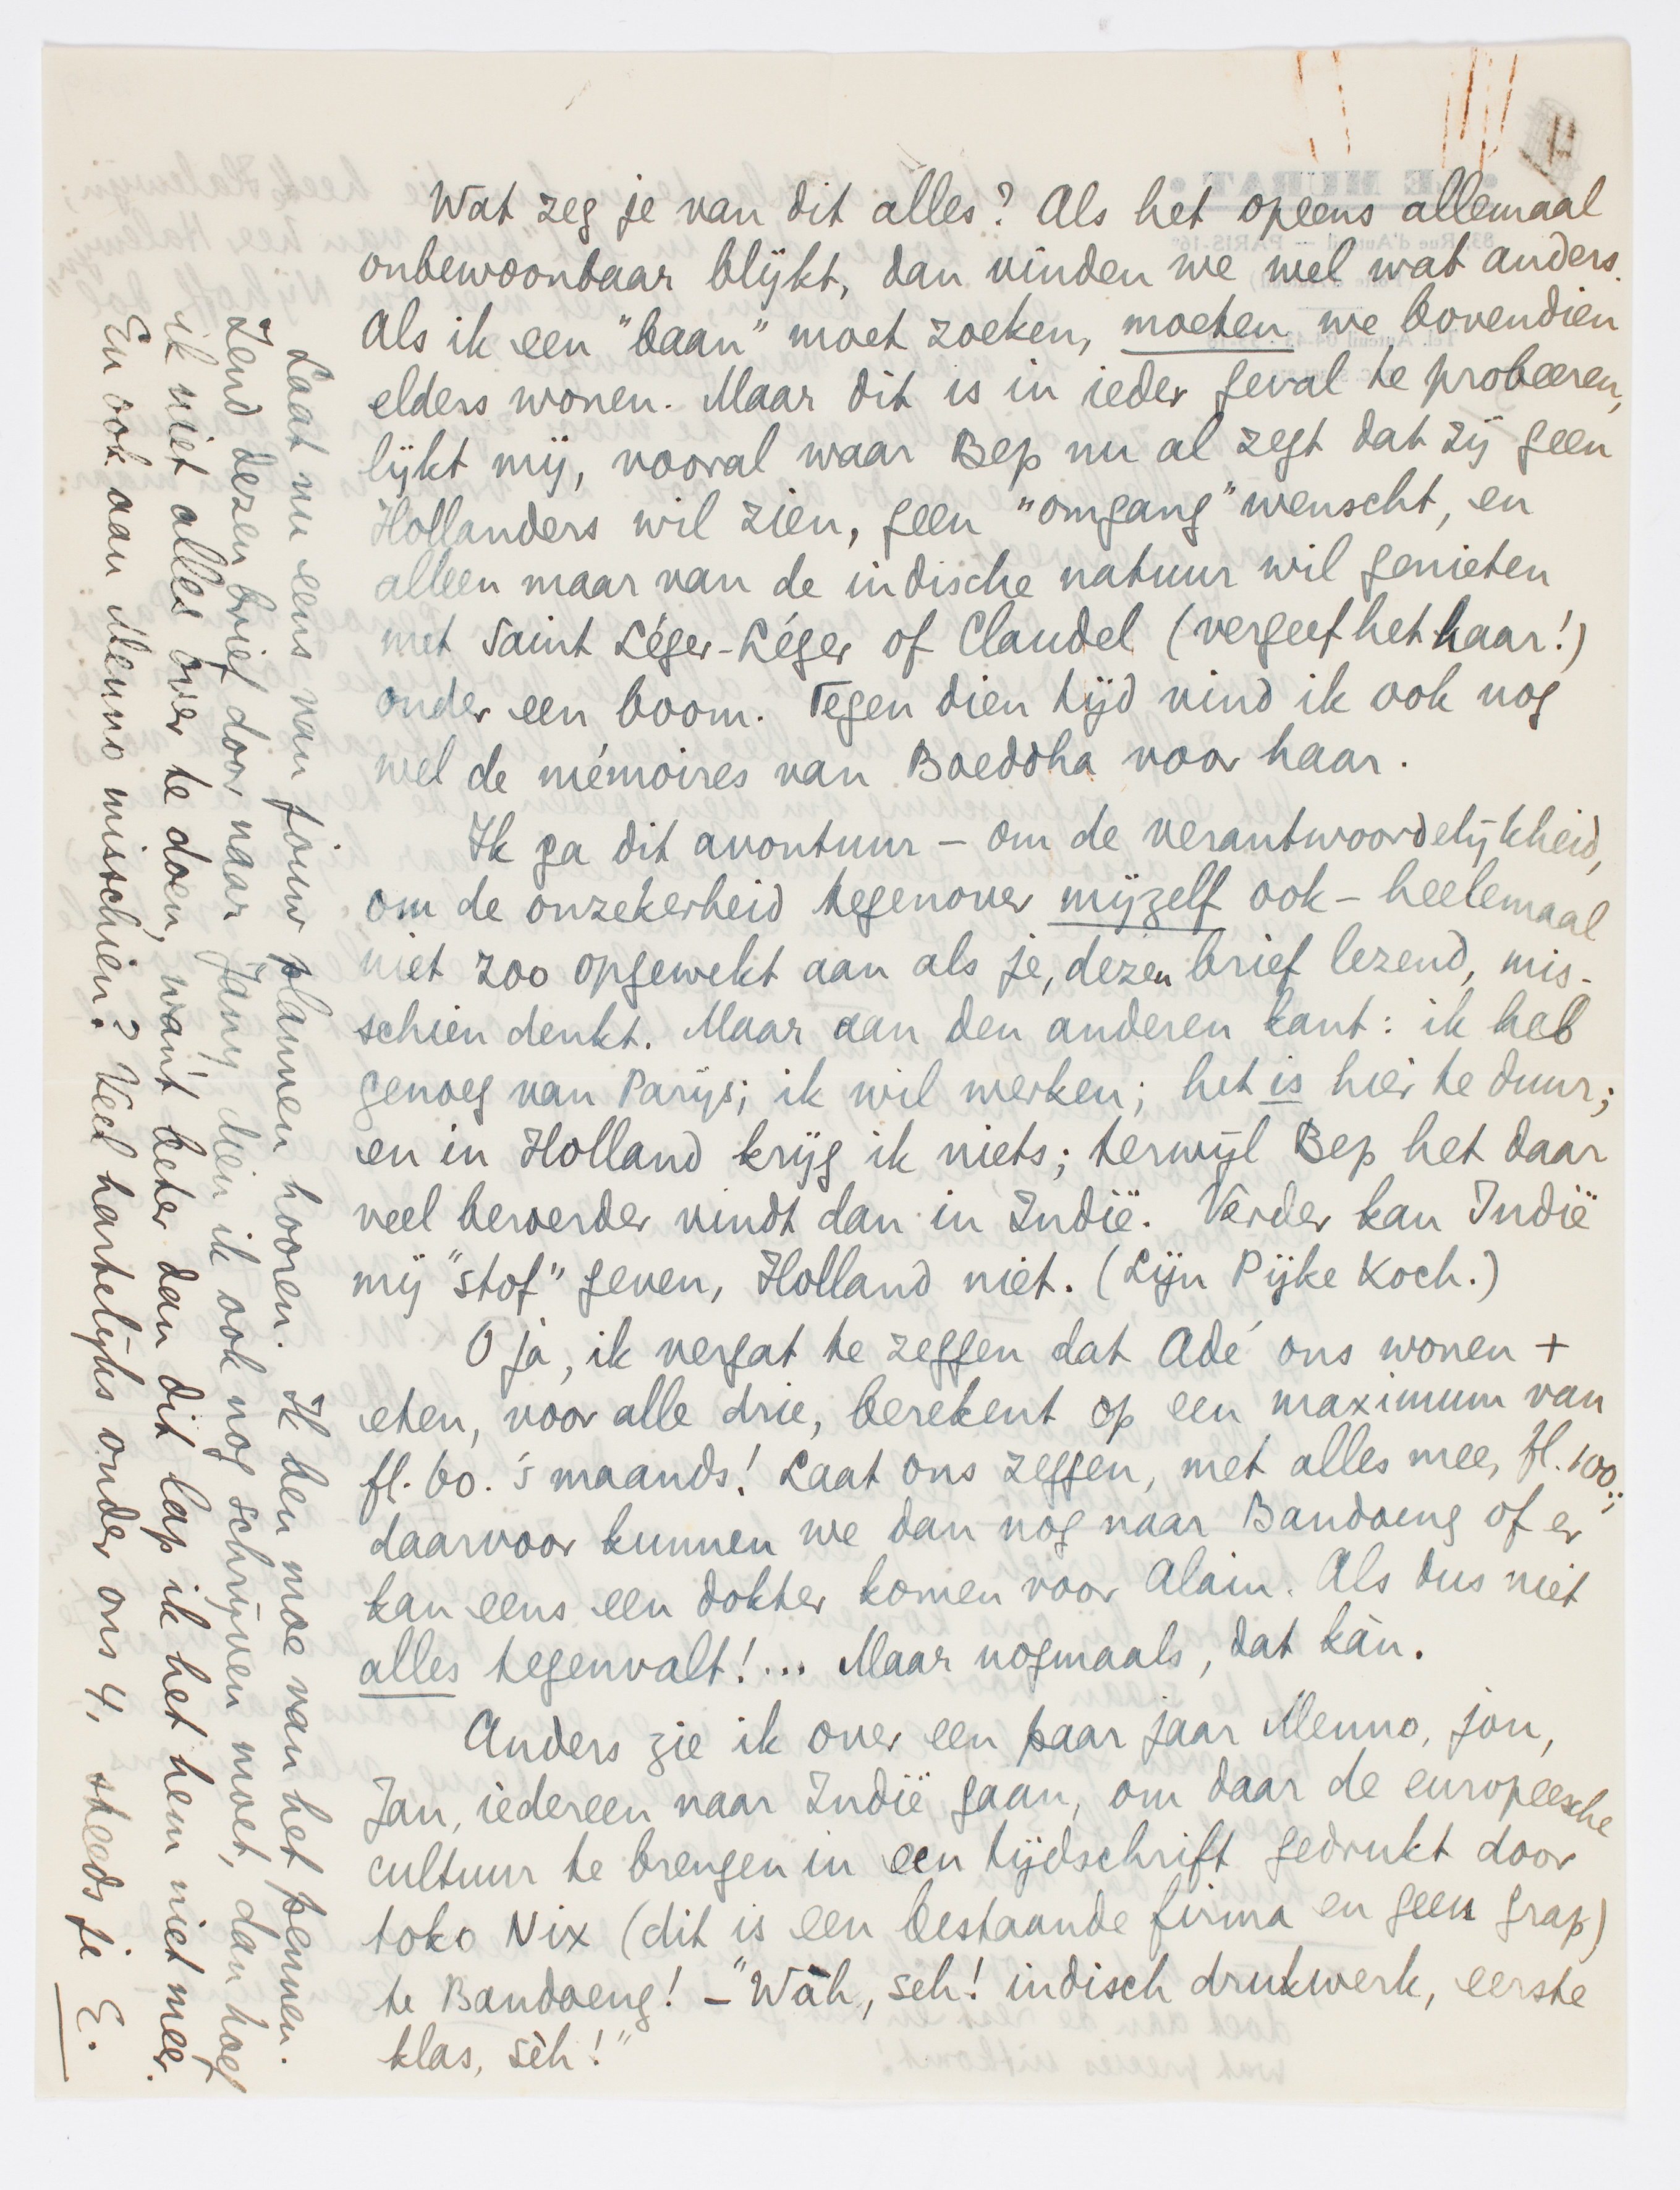 Wat zeg je van dit alles? Als het opeens allemaal
onbewoonbaar blijkt, dan vinden we wel wat anders.
Als ik een "baan" moet zoeken, moeten we bovendien
elders wonen. Maar dit is in ieder geval te probeeren,
lijkt mij, vooral waar Bep nu al zegt dat zij geen
Hollanders wil zien, geen "omgang" wenscht, en
alleen maar van de indische natuur wil genieten
met Saint Léger-Léger of Claudel (vergeef het haar!)
onder een boom. Tegen dien tijd vind ik ook nog
wel de mémoires van Boeddha voor haar.
Ik ga dit avontuur – om de verantwoordelijkheid,
om de onzekerheid tegenover mijzelf ook – heelemaal
niet zoo opgewekt aan als je, dezen brief lezend, mis-
schien denkt. Maar aan den anderen kant: ik heb
genoeg van Parijs; ik wil werken; het is hier te duur;
en in Holland krijg ik niets; terwijl Bep het daar
veel beroerder vindt dan in Indië. Verder kan Indië
mij "stof" geven, Holland niet. (Lijn Pijke Koch.)
O ja, ik vergat te zeggen dat Adé ons wonen +
eten, voor alle drie, berekent op een maximum van
fl. 60. 's maands! Laat ons zeggen, met alles mee, fl. 100.;
daarvoor kunnen we dan nog naar Bandoeng of er
kan eens een dokter komen voor Alain. Als dus niet
alles tegenvalt!... Maar nogmaals, dat kàn.
Anders zie ik over een paar jaar Menno, jou,
Jan, iedereen naar Indië gaan, om daar de europeesche
cultuur te brengen in een tijdschrift gedrukt door
toko Nix (dit is een bestaande firma en geen grap)
te Bandoeng! – "Wàh, seh! indisch drukwerk, eerste
klas, sèh!"
Laat nu eens van jouw plannen hooren. Ik ben moe van het pennen.
Zend dezen brief door naar Jany dien ik ook nog schrijven moet, dan hoef
ik niet alles over te doen, want beter dan dit lap ik het hem niet meer.
En ook aan Menno misschien? Veel hartelijks onder ons 4, steeds je E.
LE MURAT
83, Rue d'Auteuil – PARIS-16e